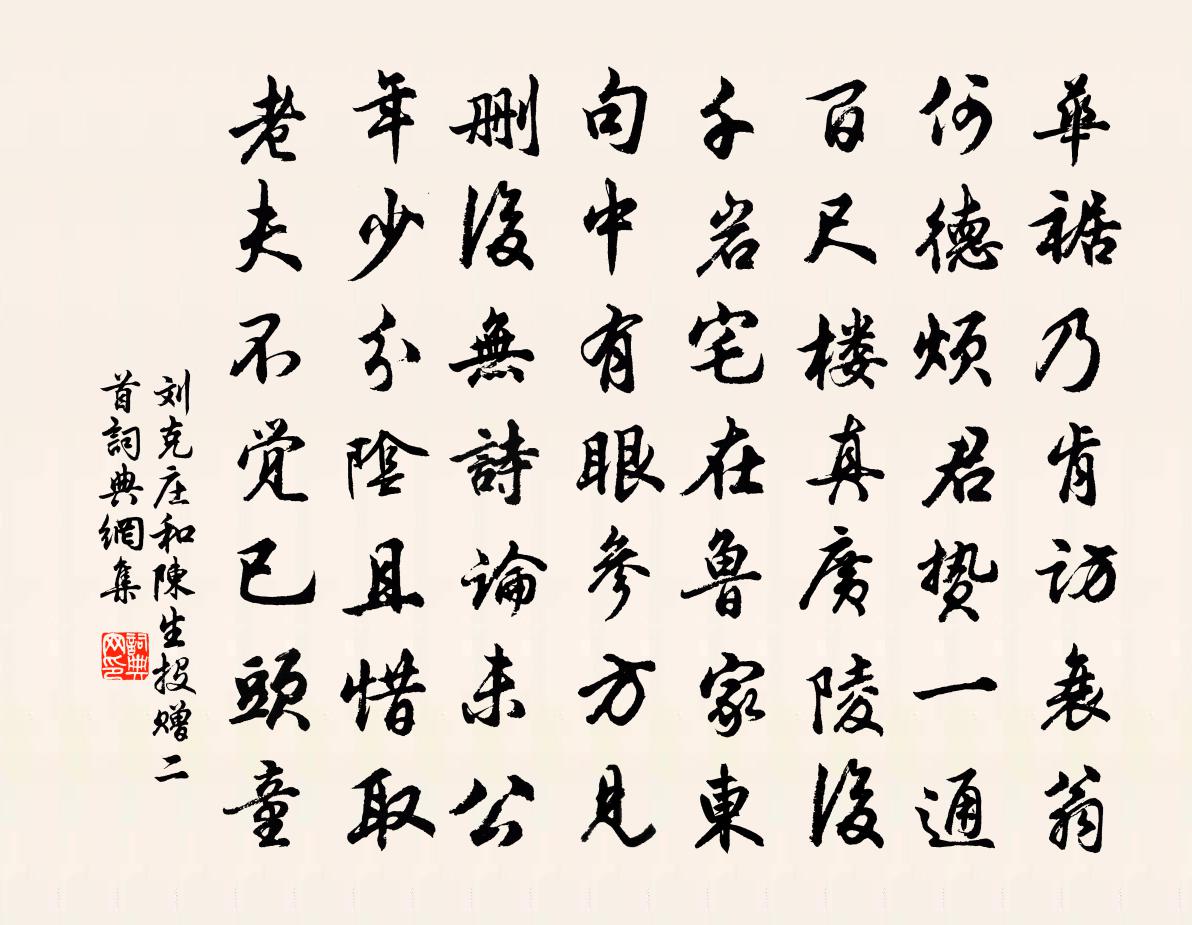 華裾乃肯訪衰翁
何德煩君贽一通
百尺楼真廣陵後
千岩宅在魯家東
句中有眼參方見
删後無詩論未公
年少分陰且惜取
老夫不觉已頭童
刘克庄和陳生投赠二
首詞典網集
詞典网印